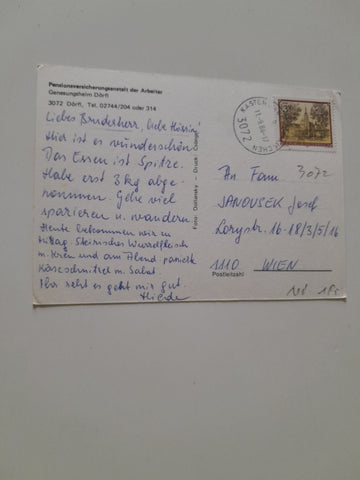 Pensionsversicherungsanstalt der Arbeiter
Genesungsheim Dörfl
3072 Dörfl, Tel. 02744/204 oder 314
Liebes Bruderherr, liebe
Hier ist es wunderschön.
Das Essen ist Spitze.
Habe erst 3 kg abge-
nommen. Gehe viel
spazieren u. wandern
Heute bekommen wir zu
Mittag Steirisches Wurzelfleisch
m. Kren und am Abend panierte
Käseschnitzel m. Salat.
Ihr seht es geht mir gut.
Foto - Druck
KASTEN
3072
An Fam. 3072
JANOUSEK Josef
Lorystr. 16-18/3/5/16
1110 WIEN
Postleitzahl